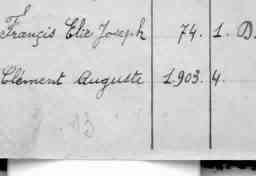 Françis Elie Joseph 74. 1. D.
Clément Auguste 1.903. 4.